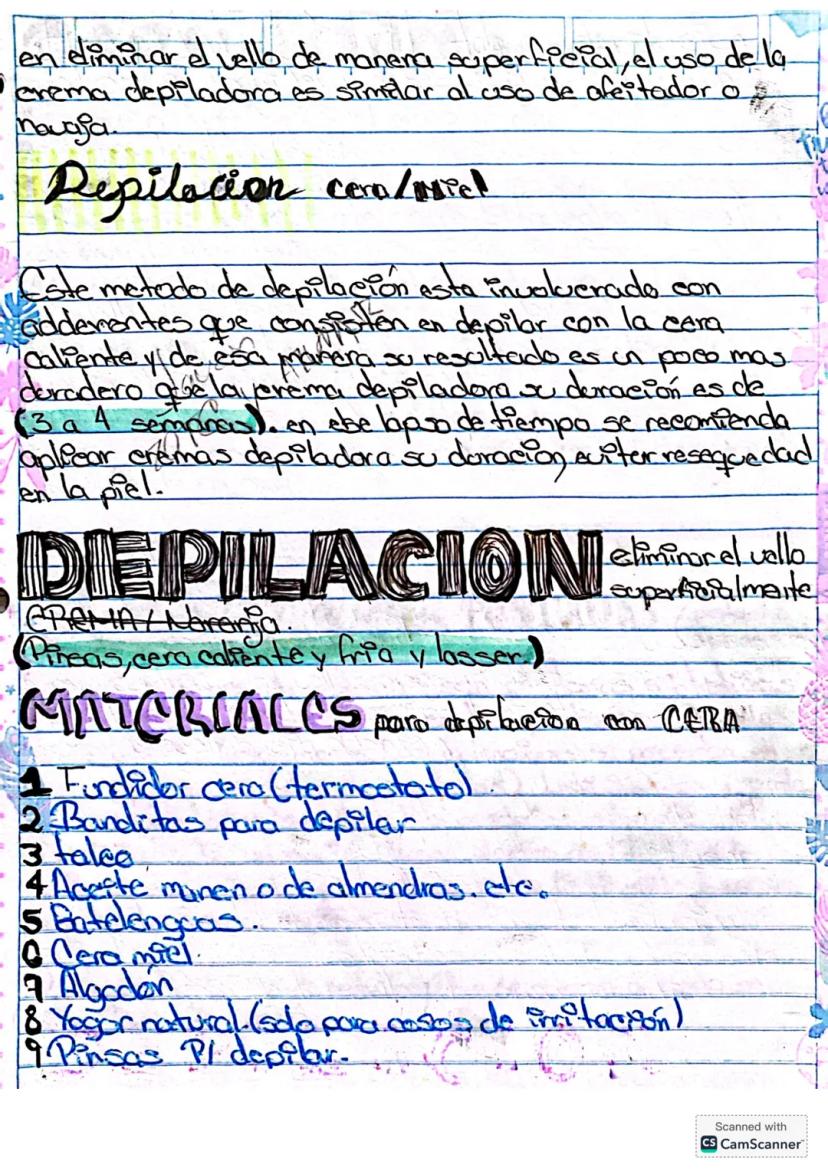 en eliminar el vello de manera superficial, el uso de la
crema depiladora es similar al uso de afeitador o
navaja.
Depilacion cera/Miel
Este metodo de depilación esta involucrado con
adderentes que consisten en depilar con la cera
caliente y de esa manera su resultado es un poco mas
duradero que la crema depiladora su duración es de
(3 a 4 semanas). en ebe lapso de tiempo se recomienda
aplicar cremas depiladora su duracion, eviter resequedad
en la piel.
DEPILACION eliminar el vello
superficialmente
CREMA / Naranja.
(Pinzas, cera caliente y fria y lasser.)
MATERIALES para depilacion con CERA
1 Fundidor cera (termostato).
2 Banditas para depilar
3 talco
4 Aceite minen o de almendras. etc.
5 Batelenguas.
6 Cera miel.
7 Algodón
8 Yogor natural. (solo para casos de irritación)
9 Pinsas P/ depilar.
Scanned with
CS CamScanner